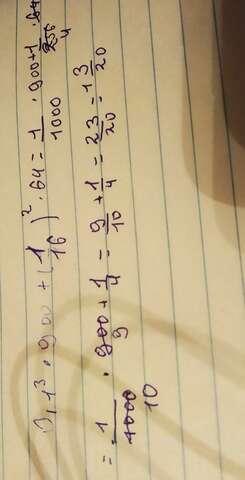 0,1³ · 900 + (1/16)² · 64 = 1/1000 · 900 + 1/256 · 64
4
= 1/1000 · 900 + 1/4 = 9/10 + 1/4 = 23/20 = 1 3/20
10 9